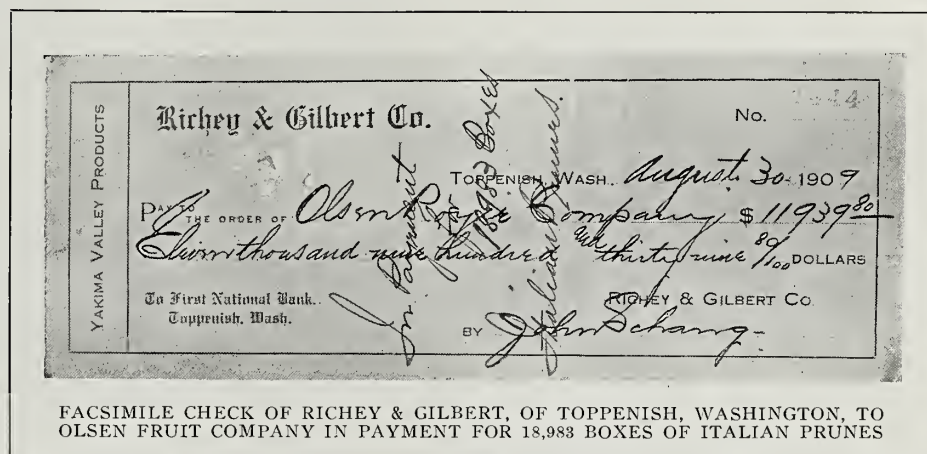 YAKIMA VALLEY PRODUCTS
Richey & Gilbert Co.
No.
TOPPENISH, WASH. August 30 1909
PAY TO THE ORDER OF Olsen Company $11939 80
Elivin thousand nine hundred and thirty nine 80/100 DOLLARS
To First National Bank.
Toppenish, Wash.
RICHEY & GILBERT CO.
BY John Schang
In Payment
for 18983 Boxes
Italian Prunes.
FACSIMILE CHECK OF RICHEY & GILBERT, OF TOPPENISH, WASHINGTON, TO
OLSEN FRUIT COMPANY IN PAYMENT FOR 18,983 BOXES OF ITALIAN PRUNES